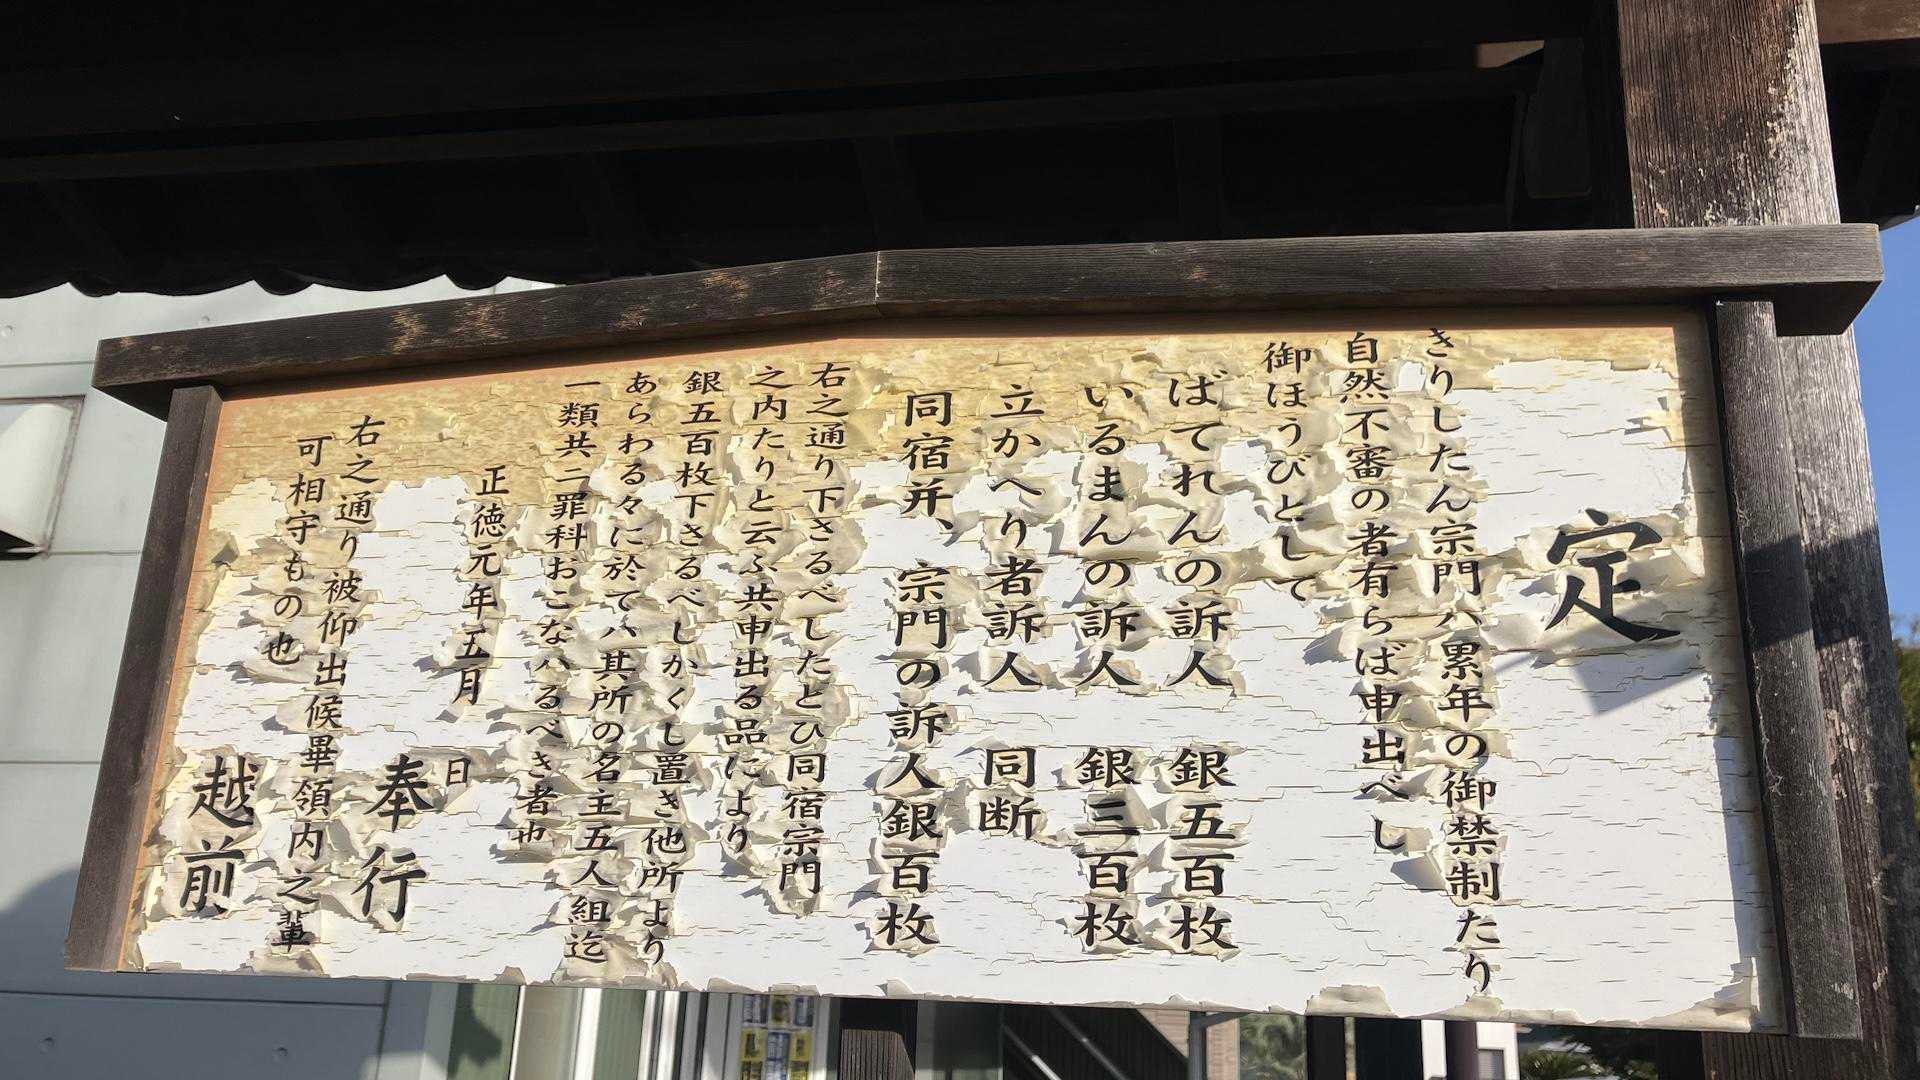 定
きりしたん宗門ハ累年の御禁制たり
自然不審の者有らば申出べし
御ほうびとして
ばてれんの訴人 銀五百枚
いるまんの訴人 銀三百枚
立かへり者訴人 同断
同宿并、宗門の訴人銀百枚
右之通り下さるべしたとひ同宿宗門
之内たりと云ふ共申出る品により
銀五百枚下さるべしかくし置き他所より
あらわる々に於てハ其所の名主五人組迄
一類共二罪科おこなハるべき者也
正徳元年五月 日
奉行
右之通り被仰出候畢領内之輩
可相守もの也
越前